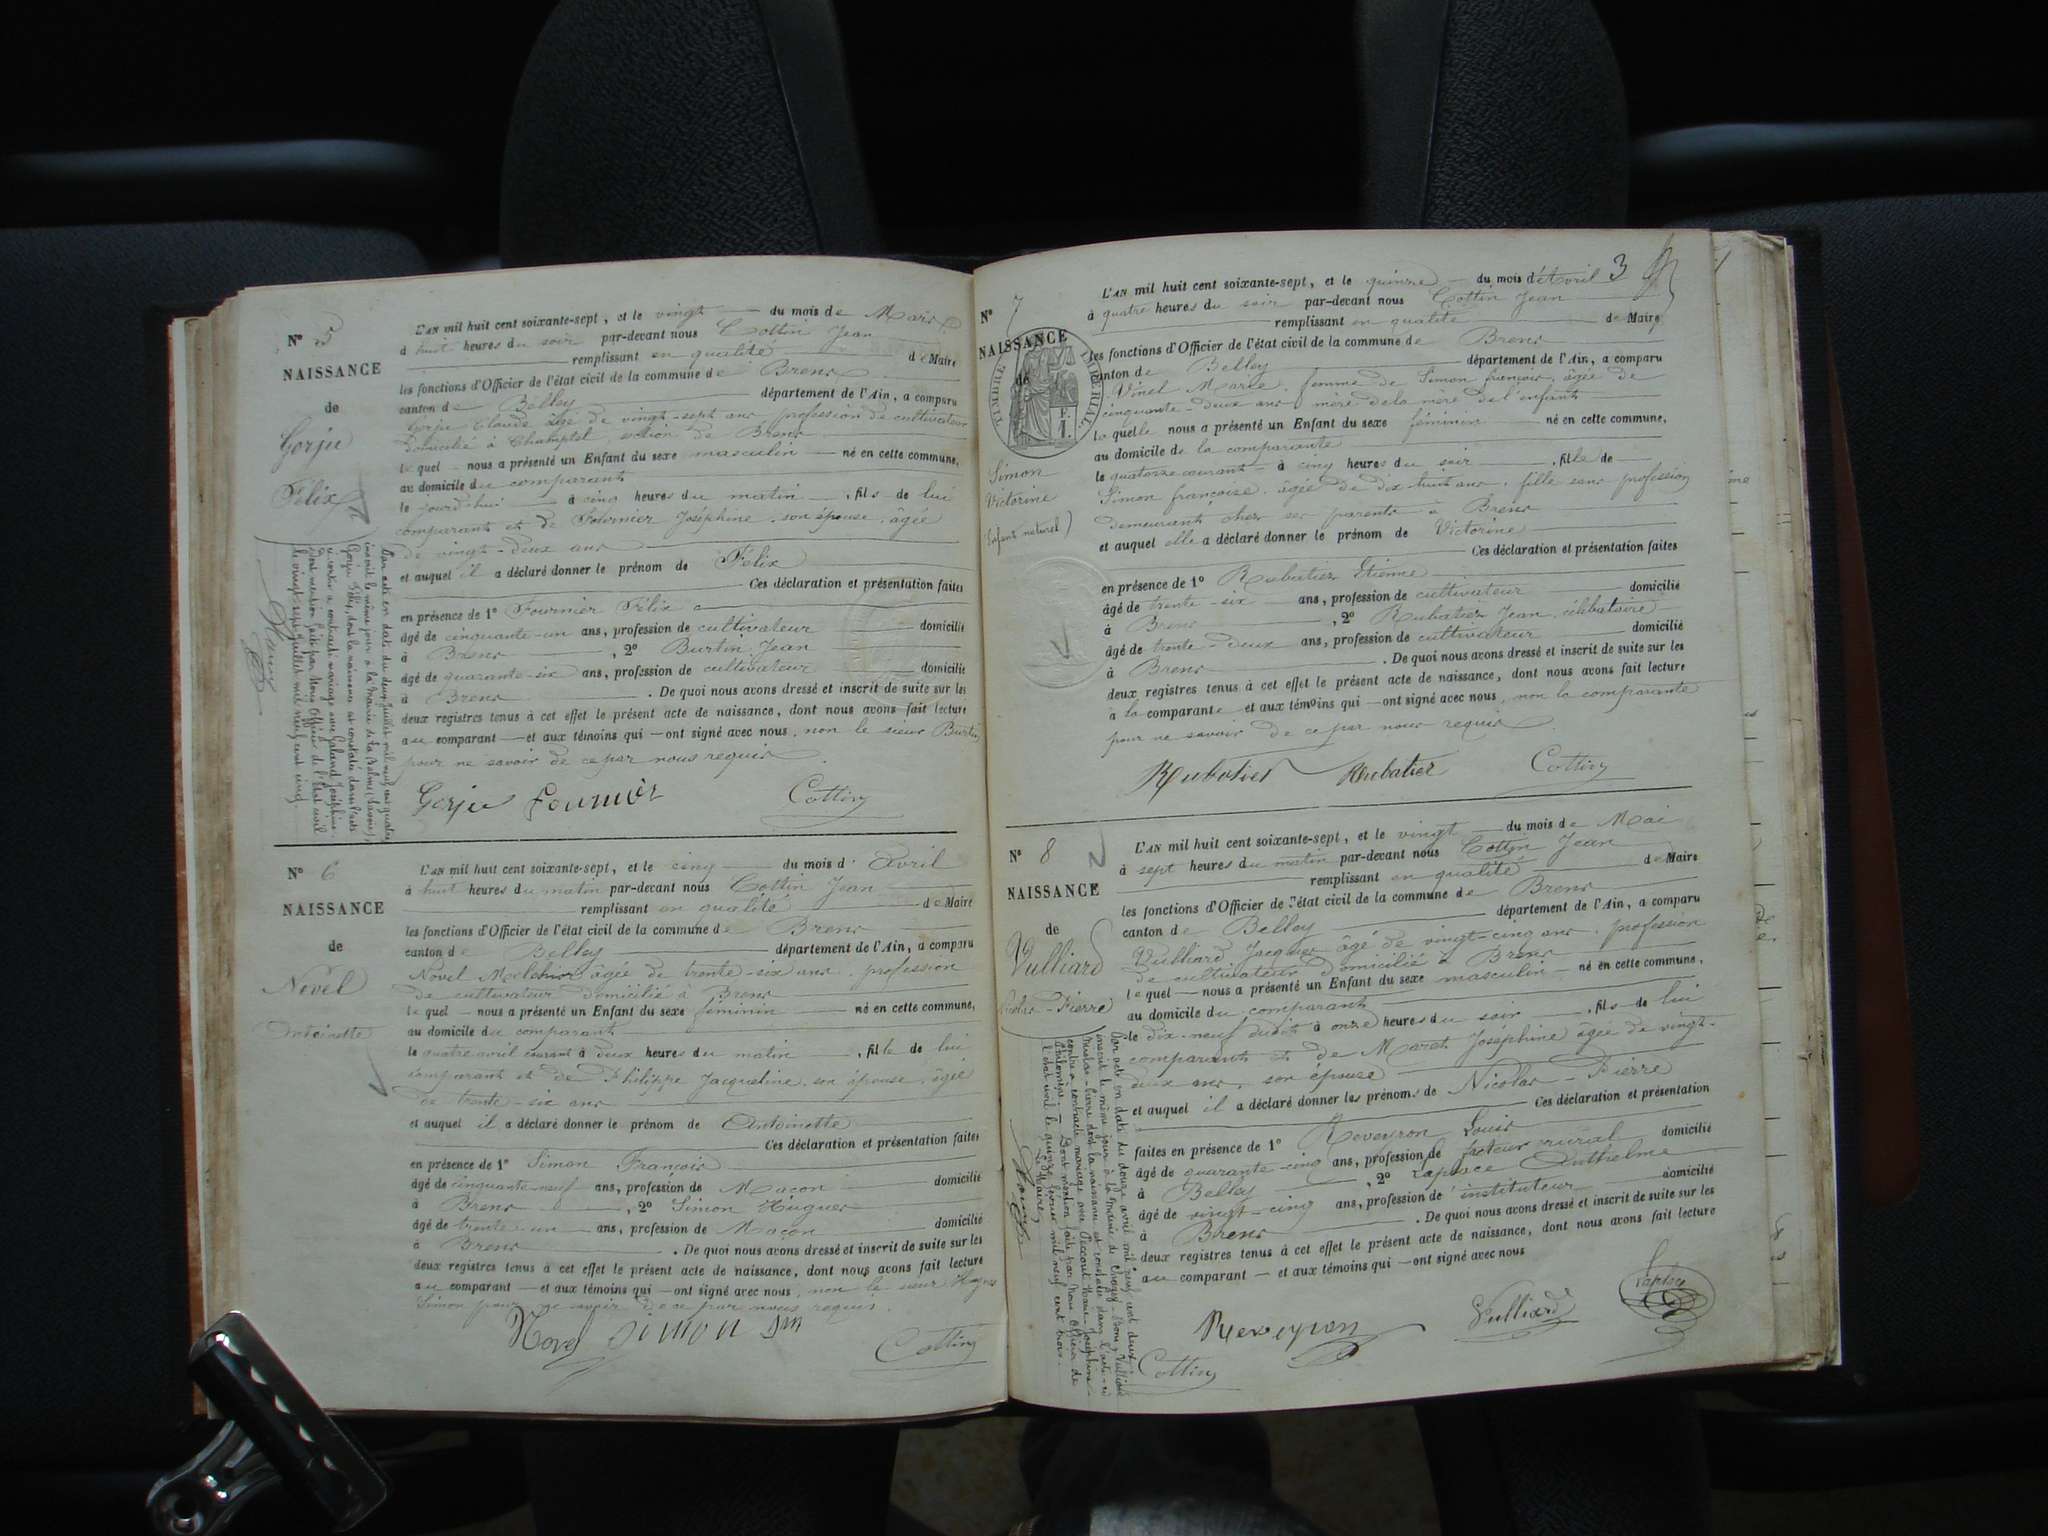 N° 5
NAISSANCE
de
Gorju
Félix
L'AN mil huit cent soixante-sept, et le vingt du mois de Mars
à huit heures du soir par-devant nous Cottin Jean
remplissant en qualité de Maire
les fonctions d'Officier de l'état civil de la commune de Brens
canton de Belley département de l'Ain, a comparu
Gorju Claude âgé de vingt-sept ans profession de cultivateur
domicilié à Champtel, section de Brens
lequel nous a présenté un Enfant du sexe masculin né en cette commune,
au domicile du comparant
le jourd'hui à cinq heures du matin, fils de lui
comparant et de Fournier Joséphine, son épouse, âgée
de vingt-deux ans
et auquel il a déclaré donner le prénom de Félix
Ces déclaration et présentation faites
en présence de 1° Fournier Félix
âgé de cinquante-un ans, profession de cultivateur domicilié
à Brens, 2° Burtin Jean
âgé de quarante-six ans, profession de cultivateur domicilié
à Brens. De quoi nous avons dressé et inscrit de suite sur les
deux registres tenus à cet effet le présent acte de naissance, dont nous avons fait lecture
au comparant et aux témoins qui ont signé avec nous, non le sieur Burtin
pour ne savoir de ce par nous requis
Gorju Fournier Cottin
Par acte en date du deux juillet mil neuf cent quatre
inscrit le même jour à la Mairie de la Balme (Savoie)
Gorju Félix, dont la naissance est constatée dans l'acte
ci-contre a contracté mariage avec Galand Joséphine.
Dont mention faite par Nous Officier de l'État civil
le vingt-sept juillet mil neuf cent cinq.
N° 6
NAISSANCE
de
Novel
Antoinette
L'AN mil huit cent soixante-sept, et le cinq du mois d'Avril
à huit heures du matin par-devant nous Cottin Jean
remplissant en qualité de Maire
les fonctions d'Officier de l'état civil de la commune de Brens
canton de Belley département de l'Ain, a comparu
Novel Melchior, âgée de trente-six ans, profession
de cultivateur domicilié à Brens
lequel nous a présenté un Enfant du sexe féminin né en cette commune,
au domicile du comparant
le quatre avril courant à deux heures du matin, fille de lui
comparant et de Philippe Jacqueline, son épouse, âgée
de trente-six ans
et auquel il a déclaré donner le prénom de Antoinette
Ces déclaration et présentation faites
en présence de 1° Simon François
âgé de cinquante-neuf ans, profession de Maçon domicilié
à Brens, 2° Simon Hugues
âgé de trente-un ans, profession de Maçon domicilié
à Brens. De quoi nous avons dressé et inscrit de suite sur les
deux registres tenus à cet effet le présent acte de naissance, dont nous avons fait lecture
au comparant et aux témoins qui ont signé avec nous, non le sieur Hugues
Simon pour ne savoir de ce par nous requis.
Novel Simon Cottin
3
N° 7
NAISSANCE
de
TIMBRE IMPERIAL
Simon
Victorine
(enfant naturel)
L'AN mil huit cent soixante-sept, et le quinze du mois d'Avril
à quatre heures du soir par-devant nous Cottin Jean
remplissant en qualité de Maire
les fonctions d'Officier de l'état civil de la commune de Brens
canton de Belley département de l'Ain, a comparu
Vinel Marie, femme de Simon françois, âgée de
cinquante-deux ans mère de la mère de l'enfant
laquelle nous a présenté un Enfant du sexe féminin né en cette commune,
au domicile de la comparante
le quatorze courant à cinq heures du soir, fille de
Simon françoise, âgée de dix huit ans, fille sans profession
demeurant chez ses parents à Brens
et auquel elle a déclaré donner le prénom de Victorine
Ces déclaration et présentation faites
en présence de 1° Rubatier Etienne
âgé de trente-six ans, profession de cultivateur domicilié
à Brens, 2° Rubatier Jean, célibataire
âgé de trente-deux ans, profession de cultivateur domicilié
à Brens. De quoi nous avons dressé et inscrit de suite sur les
deux registres tenus à cet effet le présent acte de naissance, dont nous avons fait lecture
à la comparante et aux témoins qui ont signé avec nous, non la comparante
pour ne savoir de ce par nous requis
Rubatier Rubatier Cottin
N° 8
NAISSANCE
de
Vulliard
Nicolas-Pierre
L'AN mil huit cent soixante-sept, et le vingt du mois de Mai
à sept heures du matin par-devant nous Cottin Jean
remplissant en qualité de Maire
les fonctions d'Officier de l'état civil de la commune de Brens
canton de Belley département de l'Ain, a comparu
Vulliard Jacques âgé de vingt-cinq ans, profession
de cultivateur domicilié à Brens
lequel nous a présenté un Enfant du sexe masculin né en cette commune,
au domicile du comparant
le dix-neuf dudit à onze heures du soir, fils de lui
comparant et de Maret Joséphine âgée de vingt-
deux ans, son épouse
et auquel il a déclaré donner les prénoms de Nicolas-Pierre
Ces déclaration et présentation
faites en présence de 1° Reveyron Louis
âgé de quarante-cinq ans, profession de facteur rural domicilié
à Belley, 2° Laplace Anthelme
âgé de vingt-cinq ans, profession d'instituteur domicilié
à Brens. De quoi nous avons dressé et inscrit de suite sur les
deux registres tenus à cet effet le présent acte de naissance, dont nous avons fait lecture
au comparant et aux témoins qui ont signé avec nous
Reveyron Vulliard Laplace
Cottin
Par acte en date du douze avril mil neuf cent deux
inscrit le même jour à la mairie de Vulliard
Nicolas-Pierre dont la naissance est constatée dans l'acte ci-
contre a contracté mariage avec Marie-Joséphine-
Dont mention faite par Nous Officier de
l'état civil le quinze février mil neuf cent trois.
Le Maire,